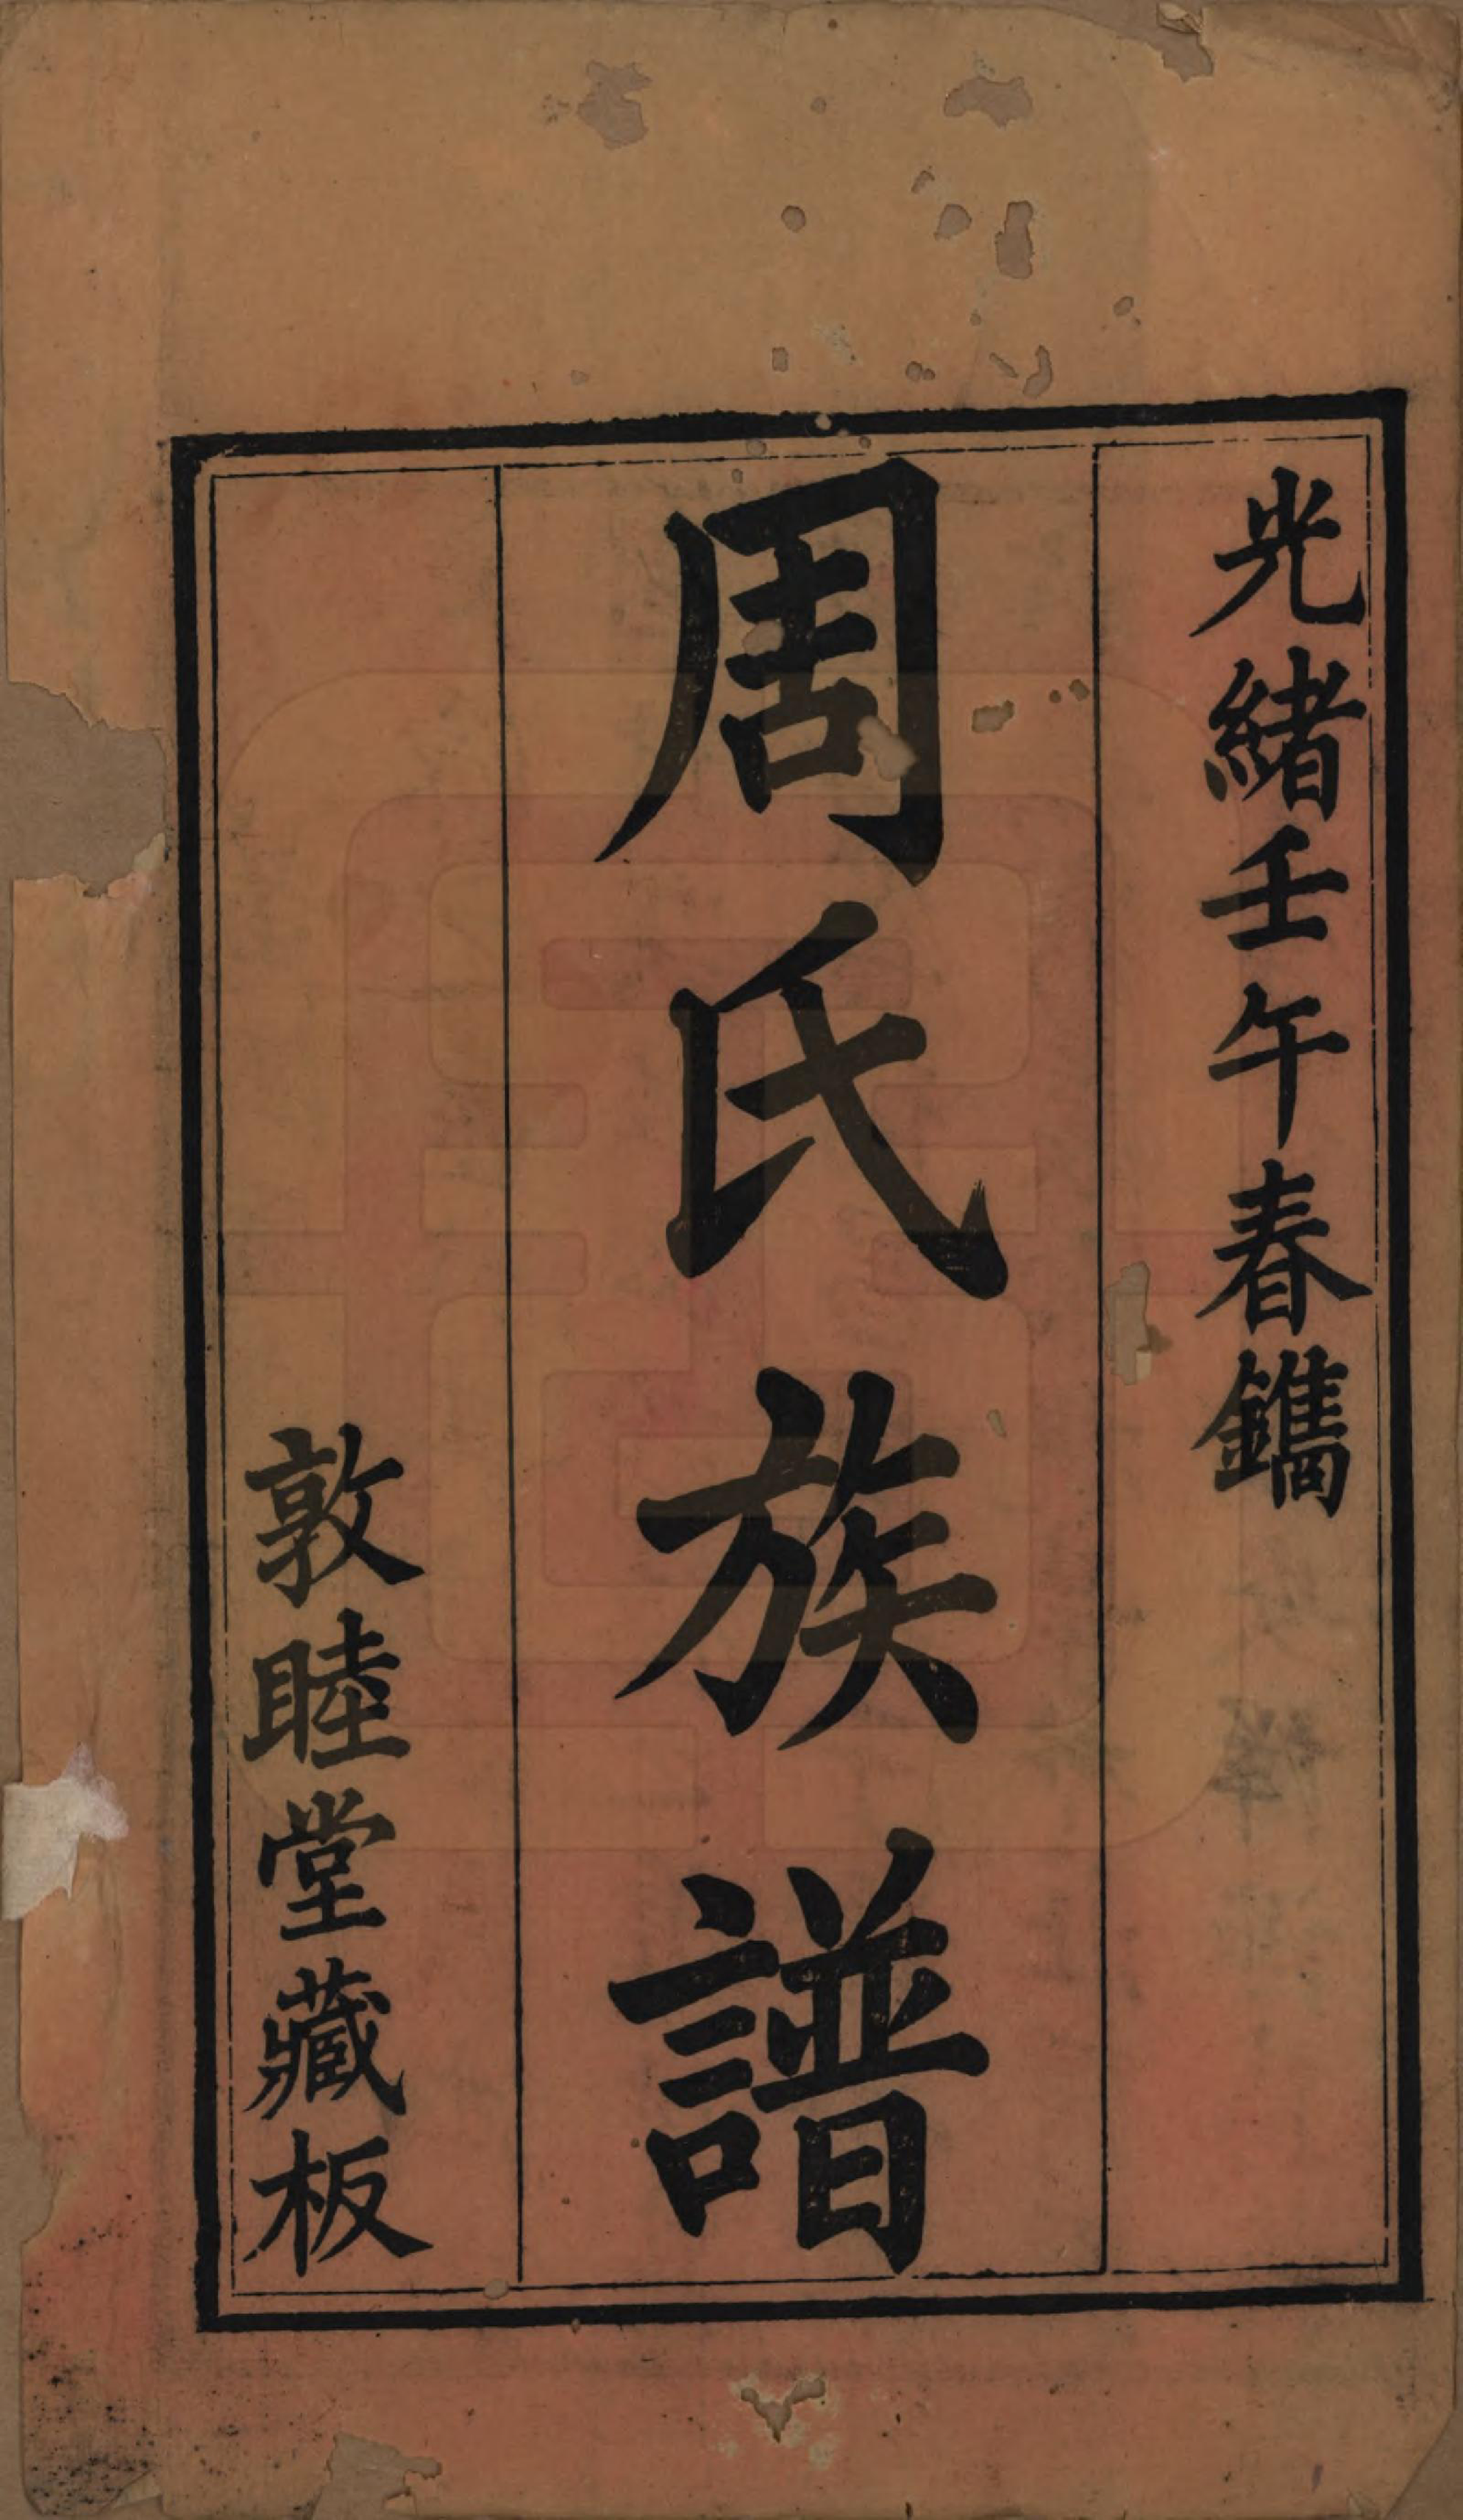 光緒壬午春鐫
周氏族譜
敦睦堂藏板